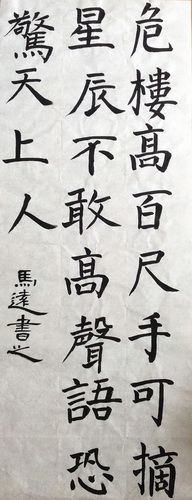 危樓高百尺手可摘
星辰不敢高聲語恐
驚天上人
馬遠書之